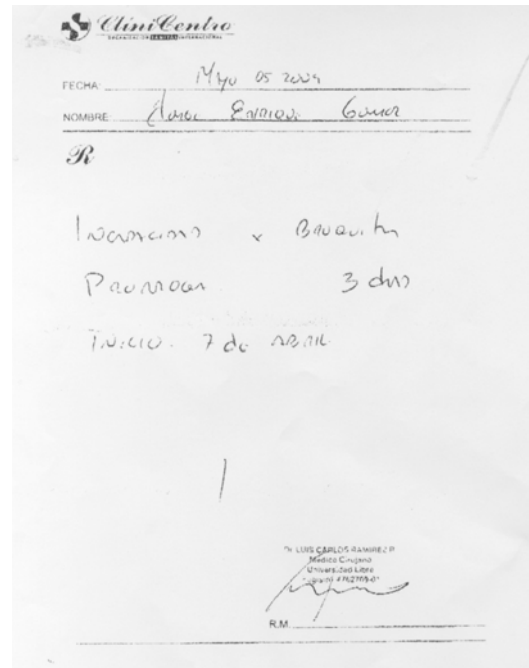 CliniCentro
ORGANIZACION SANITAS INTERNACIONAL
FECHA: Mayo 05 2009
NOMBRE Enrique Gomez
R
Incapacidad x Bronquitis
Prorroga 3 dias
Inicio. 7 de ABRIL
Dr LUIS CARLOS RAMIREZ R
Médico Cirujano
Universidad Libre
R.M.